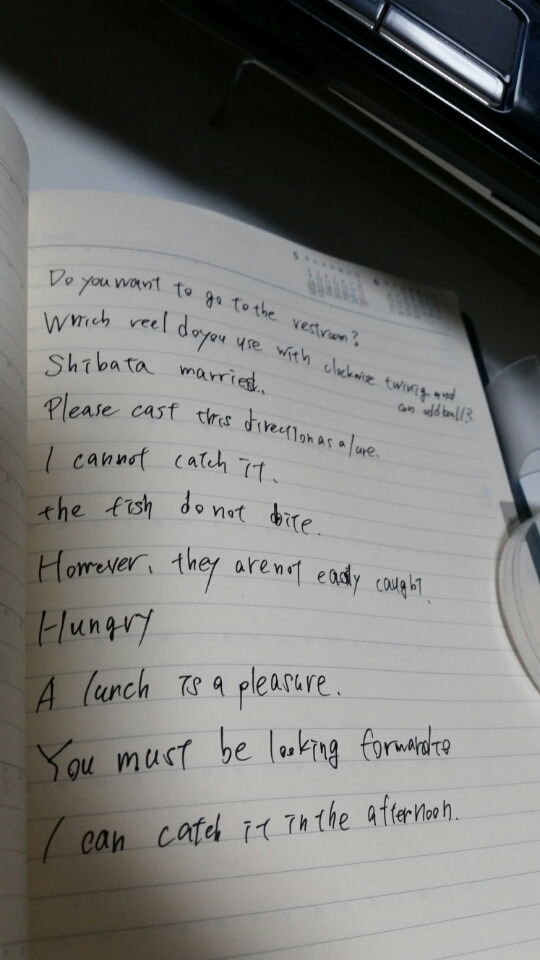 Do you want to go to the restroom?
Which reel do you use with clockwise twinig and
an oddball?
Shibata married.
Please cast this direction as a lure.
I cannot catch it.
the fish do not bite.
However, they are not easily caught.
Hungry
A lunch is a pleasure.
You must be looking forward to
I can catch it in the afternoon.